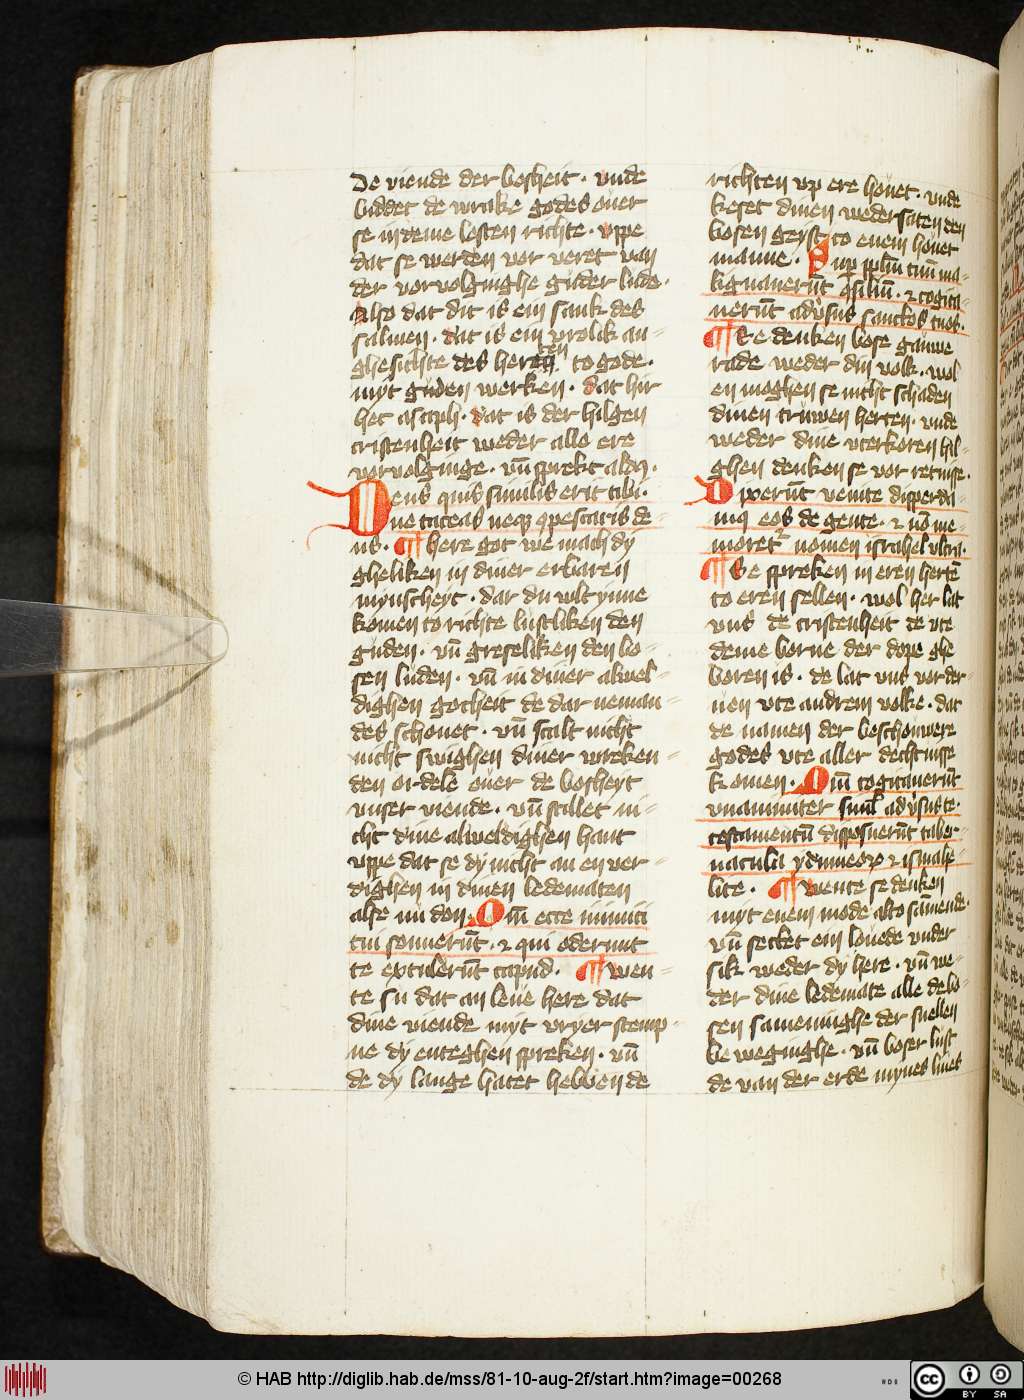 De viende der bosheit · vnde
biddet de wrake godes ouer
se in deme lesten richte · vppe
dat se werden vor veret van
der vorvolginghe guder lude ·
Also dat dit is ein sank des
salmen · dat is ein vrolik an-
ghesichte des heren to gode ·
myt guden werken · dat hir
het asaph · dat is der hilgen
cristenheit weder alle ere
vorvolginge · vn̄ sprekt aldꝰ ·
Deus quis similis erit tibi ·
ne taceas neqꝫ ꝯpescaris de-
us · ¶ here got we mach dy
gheliken in diner erbaren
mynscheyt · dar du wlt ynne
komen to richte lustliken den
guden · vn̄ greseliken den bo-
sen luden · vn̄ in diner alwel-
dighen gotheit de dar neman-
des schonet · vn̄ scalt nicht
nicht swighen diner wreken-
den ordele ouer de bosheyt
vnser viende · vn̄ stillet ni-
cht dine alweldighen hant
vppe dat se dy nicht an en ver-
dighen in dinen ledematen
alse nu don · Qm̄ ecce inimici
tui sonuerūt · ⁊ qui oderunt
te extulerūt capud · ¶ Wen-
te su dat an leue here dat
dine viende myt vryer stemp-
ne dy enteghen spreken · vn̄
de dy lange hatet hebben de
richten vp ere houet · vnde
keset dinen wedersaten den
bosen geyst to enem houet
manne · Sup̲ pplm̄ tuū ma-
lignauerūt ꝯsiliū · ⁊ cogita-
uerūt aduˀsus sanctos tuos ·
¶ Se denken bose gauwe
rade weder din volk · wol
en moghen se nicht schaden
dinen truwen herten · vnde
weder dine vterkoren hil-
ghen denken se vor retnise ·
Dixerūt venite disperda-
mꝰ eos de gente · ⁊ nō me-
moret᷑ nomen israhel vltra ·
¶ Se spreken in eren hertē
to eren sellen · wol her lat
vns de cristenheit de vte
deme borne der dope ghe
boren is · de lat vns vorder-
uen vte andrem volke · dat
de namen der beschouwere
godes vte aller dechtnisse
komen · Qm̄ cogitauerūt
vnanimiter simˡ aduˀsus te ·
testamentū disposuerūt taber-
nacula ydumeoꝝ ⁊ ismahe-
lite · ¶ Wente se denken
myt enem mode alto samende ·
vn̄ secket ein louede vnder
sik weder dy here · vn̄ we-
der dine ledemate alle de bo-
sen sameninghe der snellen
beweginghe · vn̄ boser lust
de van der erde mynes liues
© HAB http://diglib.hab.de/mss/81-10-aug-2f/start.htm?image=00268
HAB
cc
BY SA